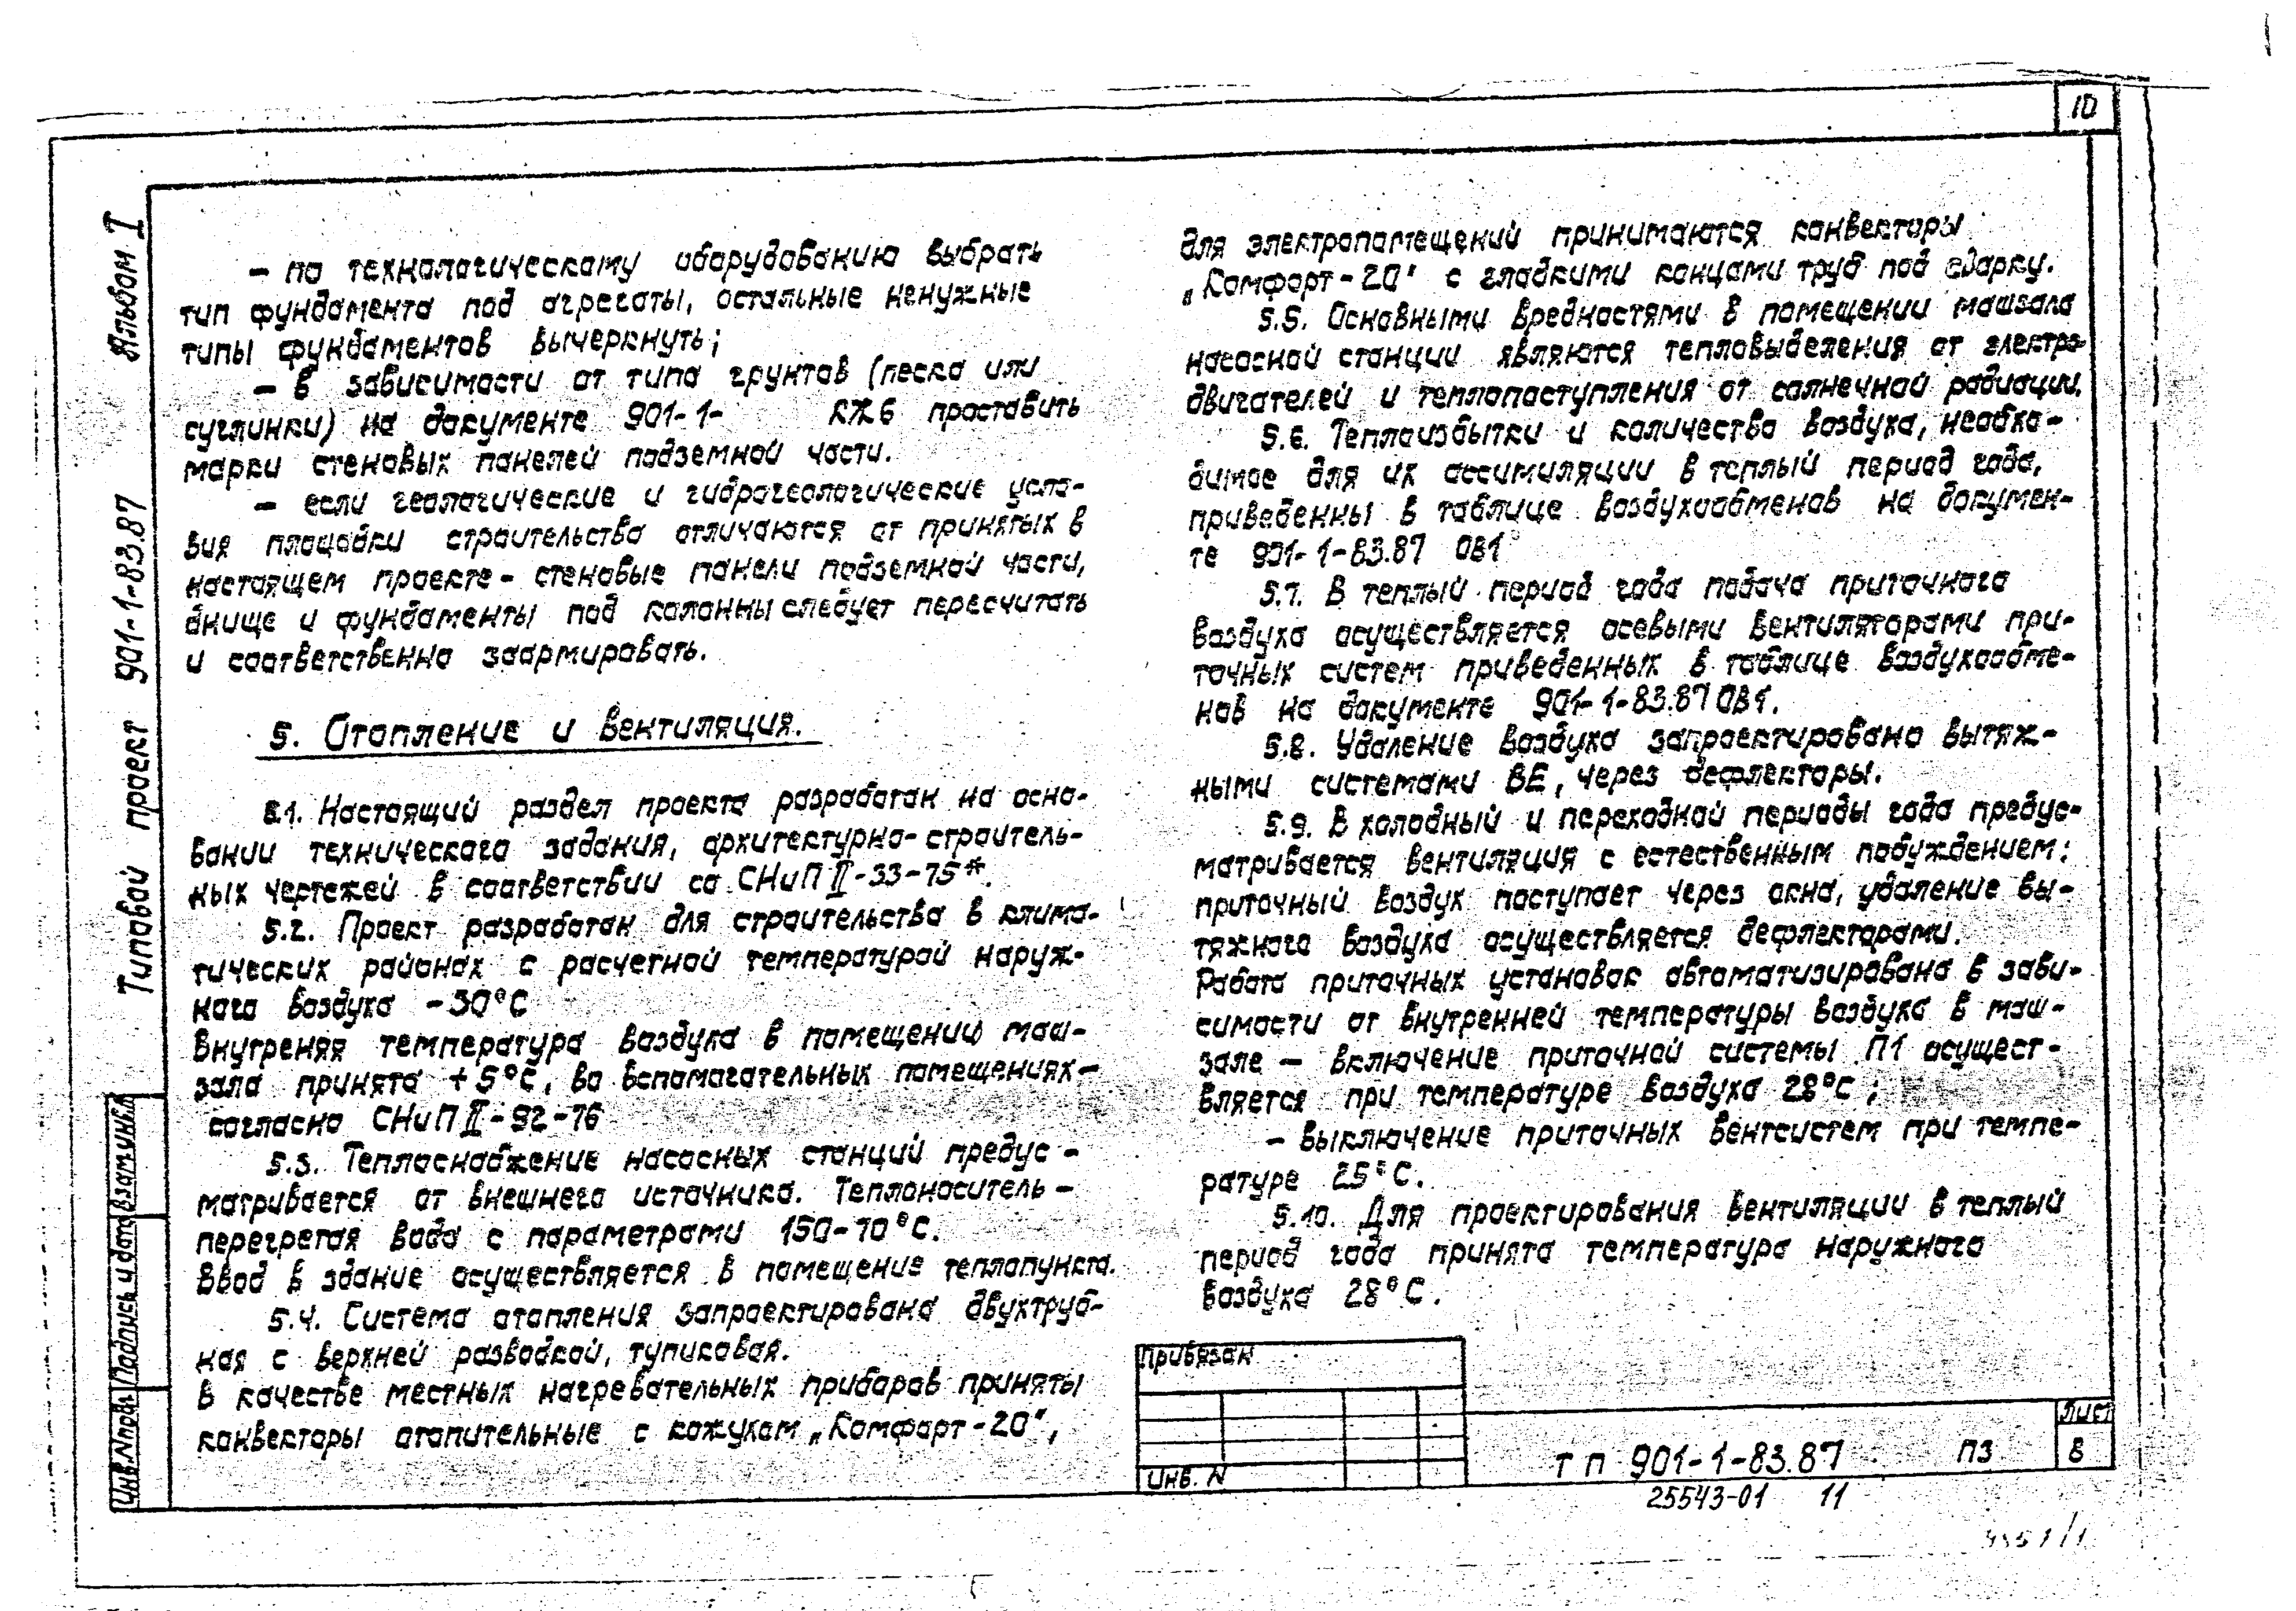 10
Альбом I
Типовой проект 901-1-83.87
– по технологическому оборудованию выбрать
тип фундамента под агрегаты, остальные ненужные
типы фундаментов вычеркнуть;
– в зависимости от типа грунтов (песка или
суглинки) на документе 901-1- КЖ6 проставить
марки стеновых панелей подземной части.
– если геологические и гидрогеологические усло-
вия площадки строительства отличаются от принятых в
настоящем проекте – стеновые панели подземной части,
днище и фундаменты под колонны следует пересчитать
и соответственно заармировать.
5. Отопление и вентиляция.
5.1. Настоящий раздел проекта разработан на осно-
вании технического задания, архитектурно-строитель-
ных чертежей в соответствии со СНиП II-33-75*.
5.2. Проект разработан для строительства в клима-
тических районах с расчетной температурой наруж-
ного воздуха -30°С
Внутреняя температура воздуха в помещении маш-
зала принята +5°С, во вспомогательных помещениях –
согласно СНиП II-92-76
5.3. Теплоснабжение насосных станций предус-
матривается от внешнего источника. Теплоноситель –
перегретая вода с параметрами 150-70°С.
Ввод в здание осуществляется в помещение теплопункта.
5.4. Система отопления запроектирована двухтруб-
ная с верхней разводкой, тупиковая.
В качестве местных нагревательных приборов приняты
конвекторы отопительные с кожухом „Комфорт-20",
для электропомещений принимаются конвекторы
„Комфорт-20" с гладкими концами труб под сварку.
5.5. Основными вредностями в помещении машзала
насосной станции являются тепловыделения от электро-
двигателей и теплопоступления от солнечной радиации.
5.6. Теплоизбытки и количество воздуха, необхо-
димое для их ассимиляции в теплый период года,
приведенны в таблице воздухообменов на докумен-
те 901-1-83.87 ОВ1
5.7. В теплый период года подача приточного
воздуха осуществляется осевыми вентиляторами при-
точных систем приведенных в таблице воздухообме-
нов на документе 901-1-83.87 ОВ1.
5.8. Удаление воздуха запроектировано вытяж-
ными системами ВЕ, через дефлекторы.
5.9. В холодный и переходной периоды года предус-
матривается вентиляция с естественным побуждением:
приточный воздух поступает через окна, удаление вы-
тяжного воздуха осуществляется дефлекторами.
Работа приточных установок автоматизирована в зави-
симости от внутренней температуры воздуха в маш-
зале – включение приточной системы П1 осущест-
вляется при температуре воздуха 28°С;
– выключение приточных вентсистем при темпе-
ратуре 25°С.
5.10. Для проектирования вентиляции в теплый
период года принята температура наружного
воздуха 28°С.
Взам инв.
Подпись и дата
Инв.N подл.
Привязан
Инв. N
ТП 901-1-83.87 ПЗ
Лист
8
25543-01 11